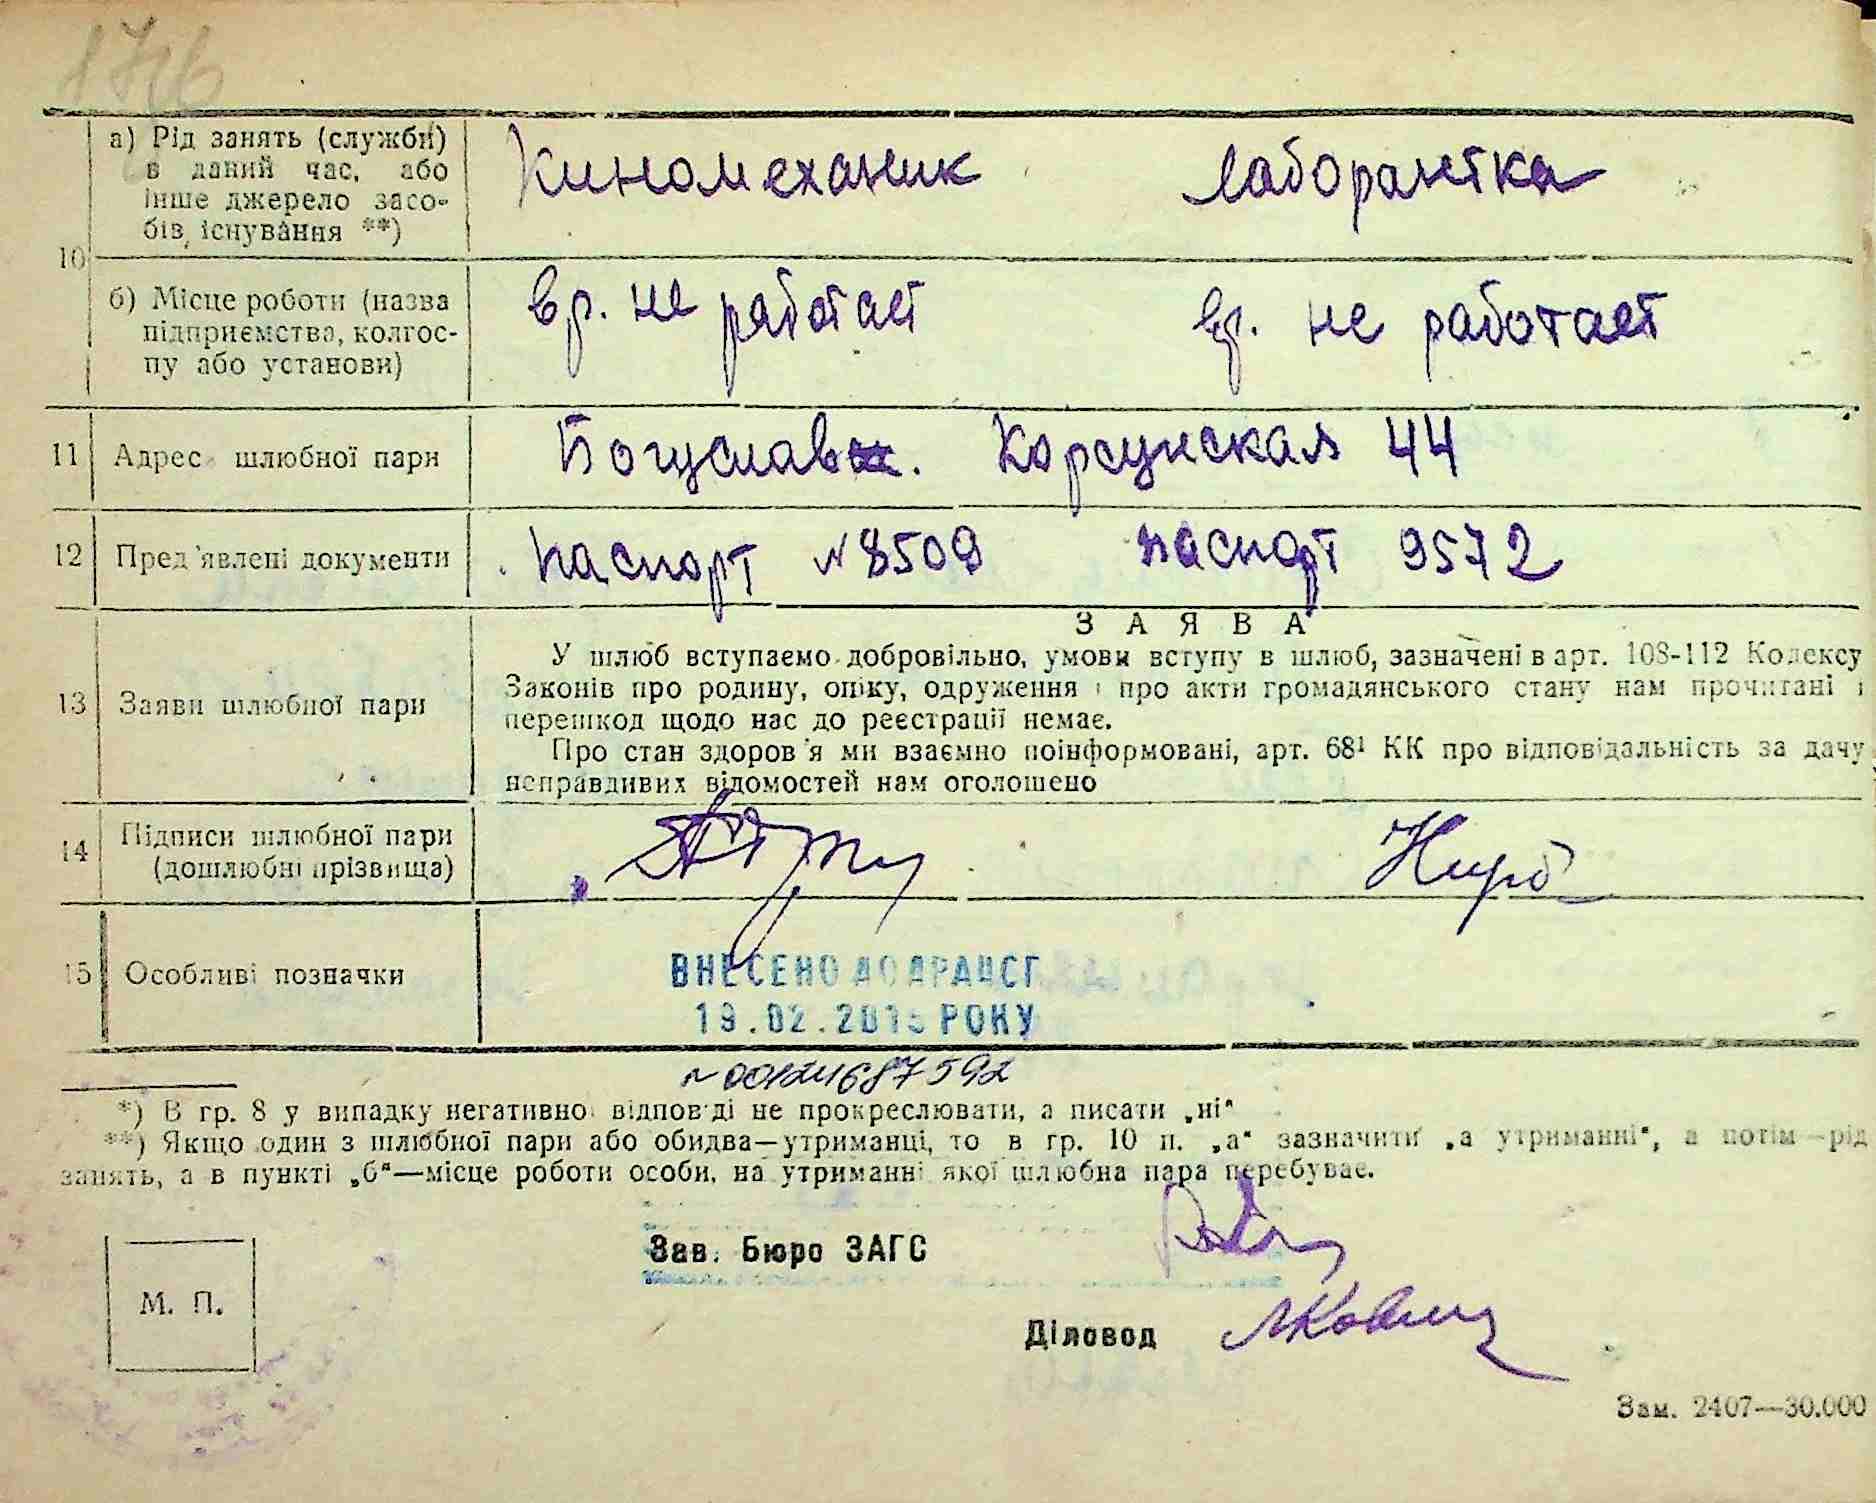 а) Рід занять (служби)
в даний час, або
інше джерело засо-
бів існування **)
Киномеханик Лаборантка
10
б) Місце роботи (назва
підприємства, колгос-
пу або установи)
вр. не работает вр. не работает
11 Адрес шлюбної пари Богуслав. Корсунская 44
12 Пред'явлені документи паспорт №8509 паспорт 9572
13 Заяви шлюбної пари
ЗАЯВА
У шлюб вступаємо добровільно, умови вступу в шлюб, зазначені в арт. 108-112 Кодексу
Законів про родину, опіку, одруження і про акти громадянського стану нам прочитані і
перешкод щодо нас до реєстрації немає.
Про стан здоров'я ми взаємно поінформовані, арт. 68¹ КК про відповідальність за дачу
неправдивих відомостей нам оголошено
14 Підписи шлюбної пари
(дошлюбні прізвища)
15 Особливі позначки
ВНЕСЕНО ДО ДРАЦСГ
19.02.2015 РОКУ
№00124687592
*) В гр. 8 у випадку негативної відповіді не прокреслювати, а писати „ні“
**) Якщо один з шлюбної пари або обидва—утриманці, то в гр. 10 п. „а“ зазначити „а утриманні“, а потім—рід
занять, а в пункті „б“—місце роботи особи, на утриманні якої шлюбна пара перебуває.
Зав. Бюро ЗАГС
М. П.
Діловод
Зам. 2407—30.000